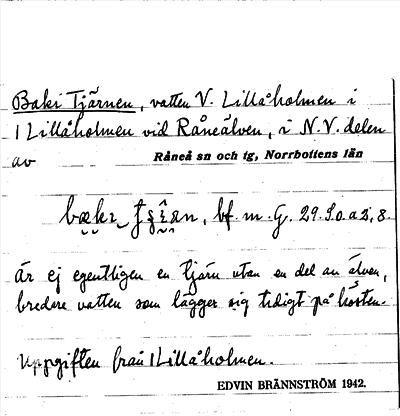 Baki Tjärnen, vatten V. Lillåholmen i
1 Lillåholmen vid Råneälven, i N.V. delen
av Råneå sn och tg, Norrbottens län
bf. m. G. 29.
är ej egentligen en tjärn utan en del av älven,
bredare vatten som lägger sig tidigt på hösten.
Uppgiften från 1 Lillåholmen.
EDVIN BRÄNNSTRÖM 1942.